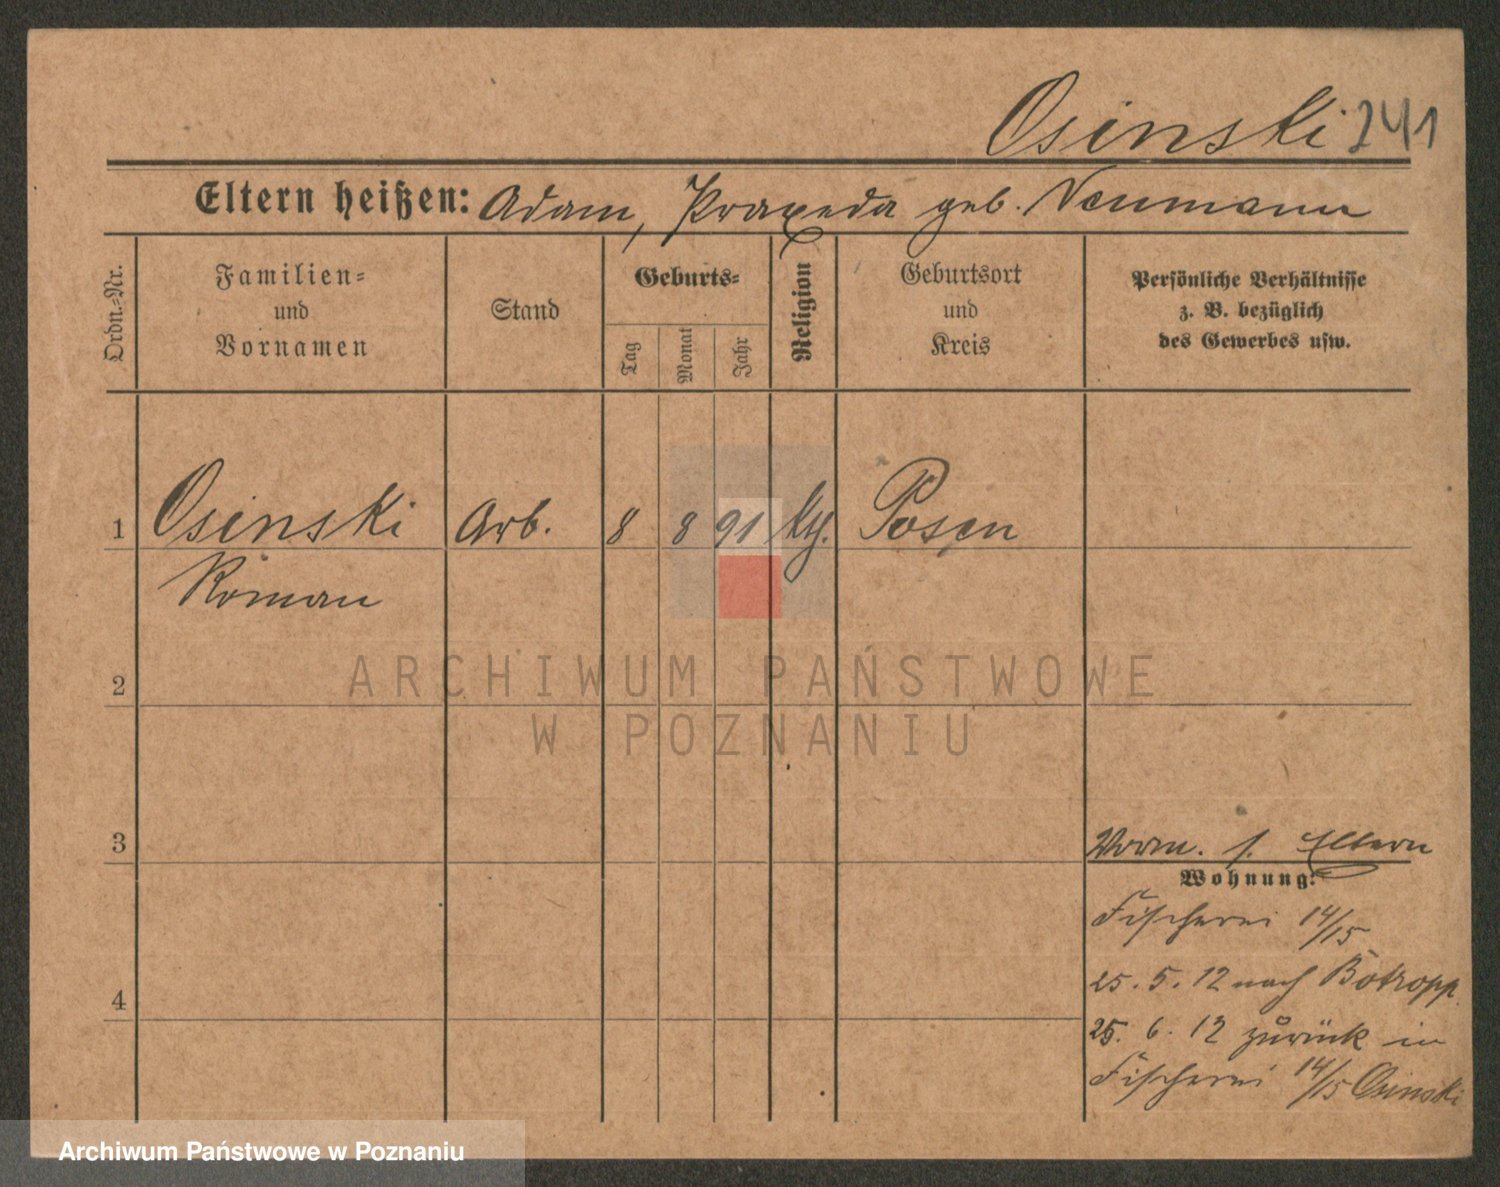 Osinski 241
Eltern heißen: Adam, Praxeda geb. Neumann
Ordn.-Nr.
Familien-
und
Vornamen
Stand
Geburts-
Tag
Monat
Jahr
Religion
Geburtsort
und
Kreis
Persönliche Verhältnisse
z. B. bezüglich
des Gewerbes usw.
1 Osinski Arb. 8 8 91 kth. Posen
Roman
2
3
Vorm. s. Eltern
Wohnung:
Fischerei 14/15
25. 5. 12 nach Botropp.
4
25. 6. 12 zurück in
Fischerei 14/15 Osinski
ARCHIWUM PAŃSTWOWE
W POZNANIU
Archiwum Państwowe w Poznaniu